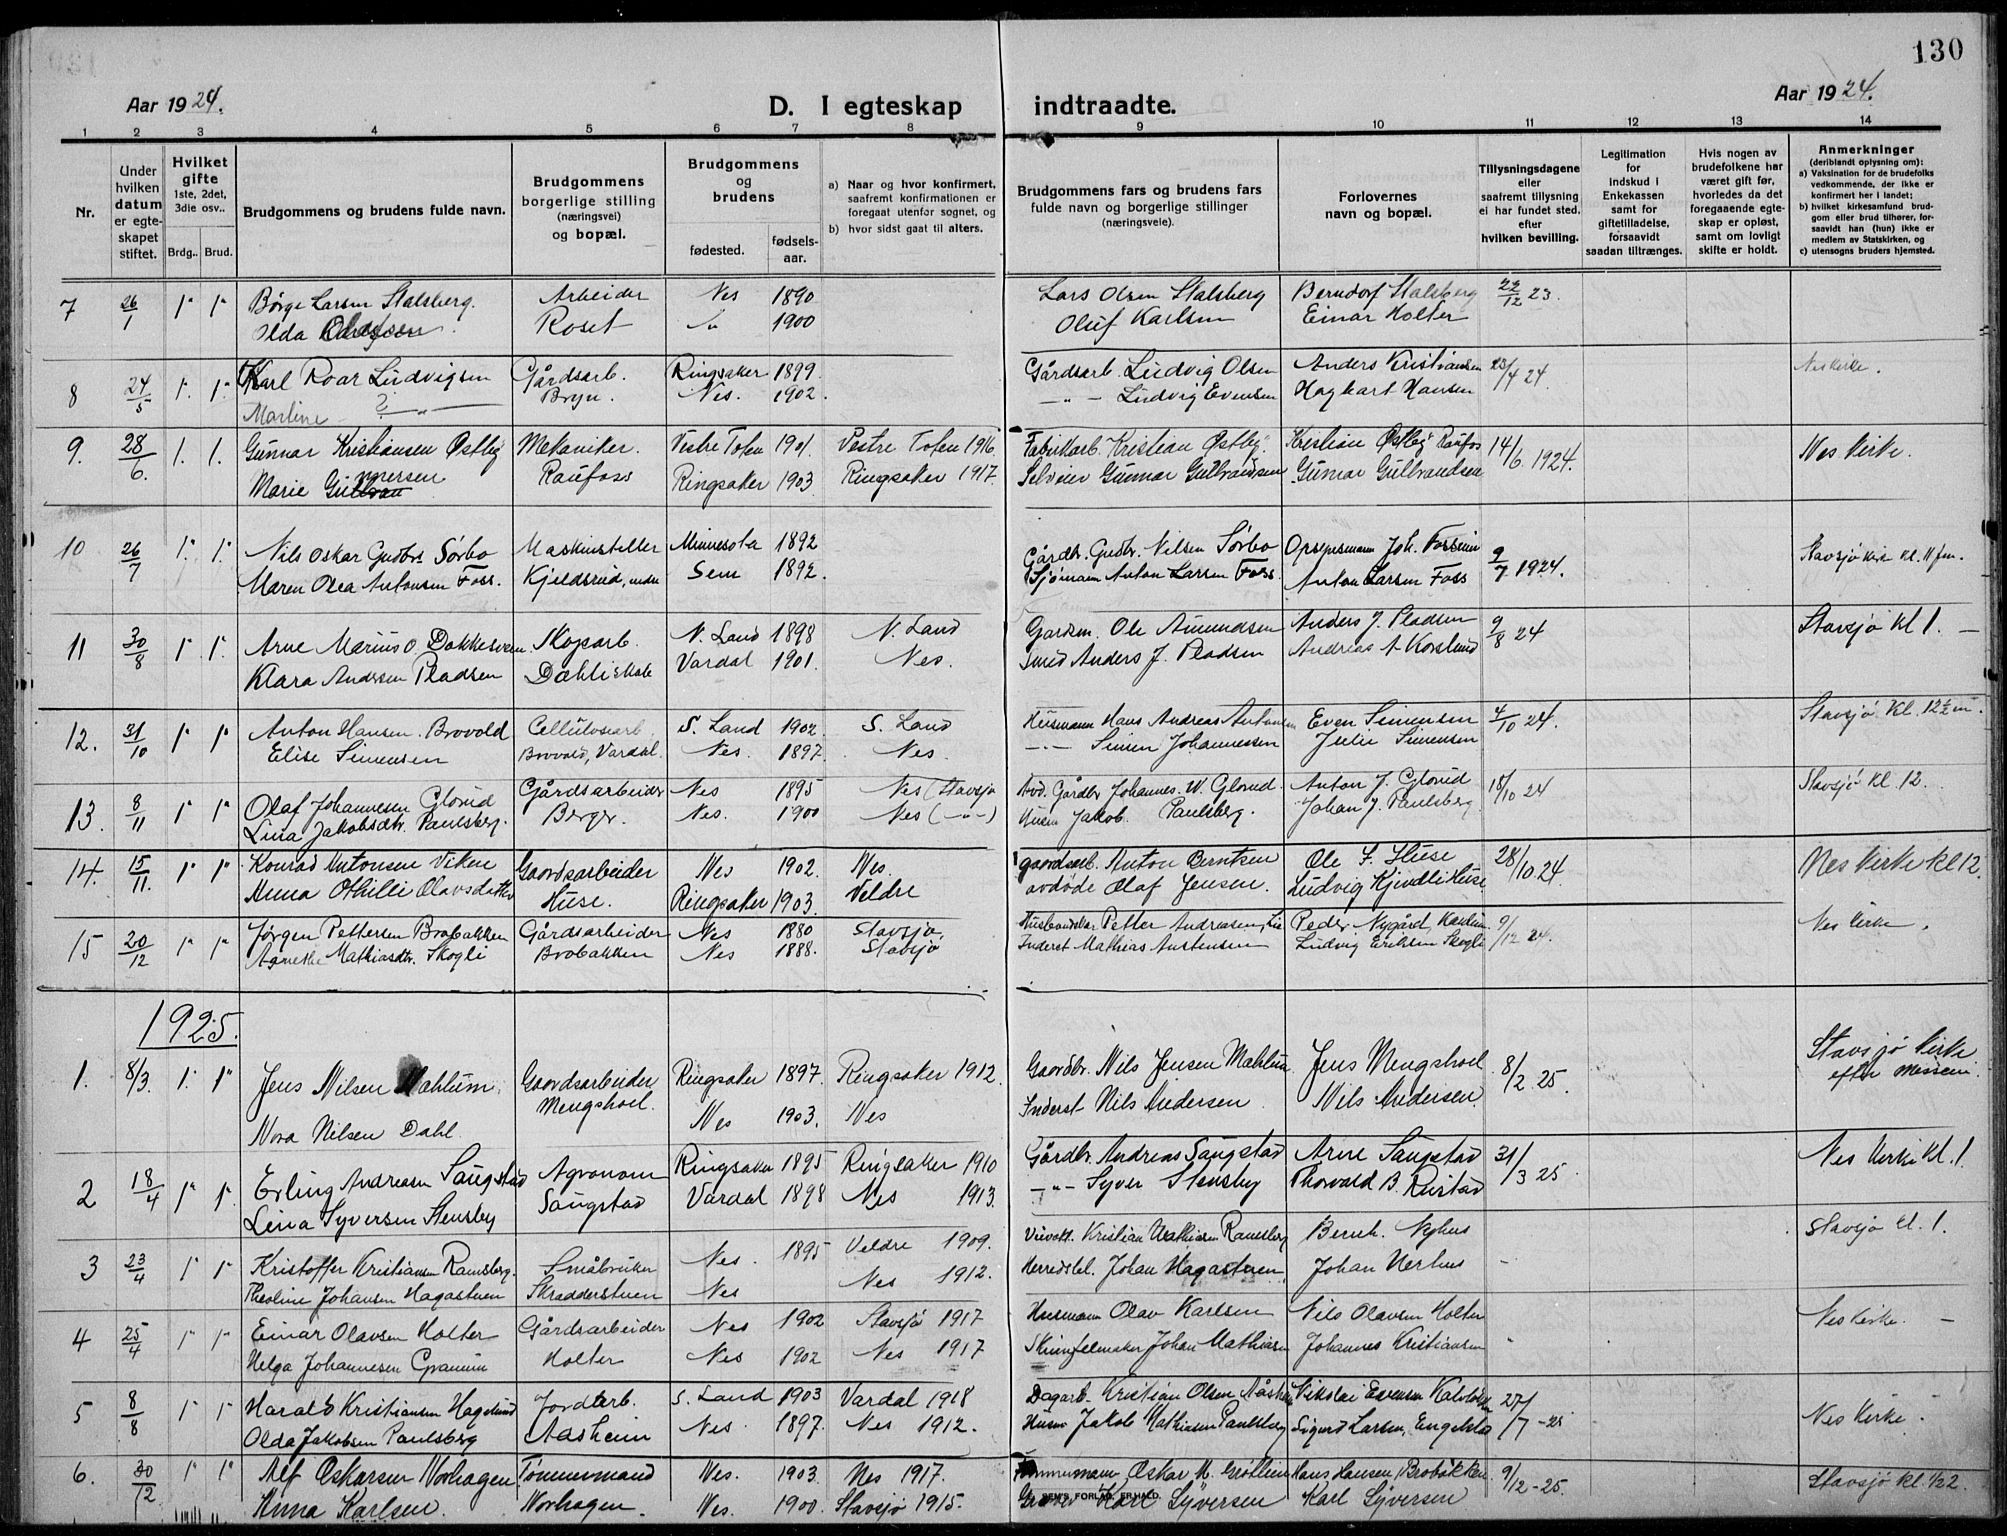 130
Aar 1924.
D. I egteskap indtraadte.
Aar 1924.
1 2 3 4 5 6 7 8 9 10 11 12 13 14
Nr.
Under hvilken datum er egteskapet stiftet.
Hvilket gifte 1ste, 2det, 3die osv..
Brdg.. Brud.
Brudgommens og brudens fulde navn.
Brudgommens borgerlige stilling (næringsvei) og bopæl.
Brudgommens og brudens
fødested. fødselsaar.
a) Naar og hvor konfirmert, saafremt konfirmationen er foregaat utenfor sognet, og
b) hvor sidst gaat til alters.
Brudgommens fars og brudens fars fulde navn og borgerlige stillinger (næringsveie).
Forlovernes navn og bopæl.
Tillysningsdagene eller saafremt tillysning ei har fundet sted, efter hvilken bevilling.
Legitimation for indskud i Enkekassen samt for giftetilladelse, forsaavidt saadan tiltrænges.
Hvis nogen av brudefolkene har været gift før, hvorledes da det foregaaende egteskap er opløst, samt om lovligt skifte er holdt.
Anmerkninger (deriblandt oplysning om):
a) Vaksination for de brudefolks vedkommende, der ikke er konfirmert her i landet;
b) hvilket kirkesamfund brudgom eller brud tilhører, forsaavidt han (hun) ikke er medlem av Statskirken, og
c) utensogns bruders hjemsted.
7 26/1 1 1 Børge Larsen Stalsberg. Arbeider Nes 1890 Lars Olsen Stalsberg Berndorf Stalsberg 22/12 23.
Olda Olufsen Roset 1900 Oluf Karlsen Einar Holter
8 24/5 1. 1. Karl Roar Ludvigsen Gårdsarb. Ringsaker 1899. Gårdsarb. Ludvig Olsen Anders Kristiansen 23/4 24. Nes kirke.
Martine ? —"— Bryn. Nes. 1902. —"— Ludvig Evensen Hagbart Hansen
9. 28/6. 1. 1. Gunnar Kristiansen Østby Mekaniker. Vestre Toten 1901. Vestre Toten 1916. Fabrikarb. Kristian Østby. Kristian Østby Raufos 14/6 1924. Nes kirke.
Marie Gunnersen Raufoss Ringsaker 1903 Ringsaker 1917. Selveier Gunnar Gulbrandsen Gunnar Gulbrandsen
10 26/7 1. 1. Nils Oskar Gudbr. Sørbo Maskinsteller Minnesota 1892 Gårdbr. Gudbr. Nilsen Sørbo Opsynsmann Joh. 9/7 1924. Stavsjø kirke kl. 11 fm.
Maren Olea Antonsen Foss. Kjeldsrud, Sem 1892. Sjømann Anton Larsen Foss. Anton Larsen Foss
11 30/8 1 1. Arne Marius O. Dokkesveen Skogsarb. N. Land 1898 N. Land Gardsm. Ole Amundsen Anders J. Pladsen 9/8 24 Stavsjø kl 1. —
Klara Andersen Pladsen Dahliskole Vardal 1901. Nes. Smed Anders J. Pladsen Andreas A Korslund
12. 31/10 1 1 Anton Hansen Brovold Cellulosearb. S. Land 1902. S. Land Husmann Hans Andreas Antonsen Even Simensen 4/10 24. Stavsjø Kl. 12½ m.
Elise Simensen Brovold, Vardal. Nes. 1897. Nes. —"— Simen Johannessen Julie Simensen
13. 8/11 1 1 Olaf Johannesen Glorud Gårdsarbeider Nes 1895 Nes (Stavsjø Avd. Gårdbr Johannes. W. Glorud. Anton J. Glorud 18/10 24 Stavsjø kl. 12.
Lina Jakobsdtr. Paulsberg. Berger. Nes. 1900 Nes (—"—) Husm Jakob Paulsberg. Johan J. Paulsberg.
14. 15/11. 1 1 Konrad Antonsen Viken Gaardsarbeider Nes 1902. Nes. gaardsarb. Anton Berntsen Ole F. Huse 28/10 24. Nes kirke kl 12.
Anna Othilie Olavsdatter Huse. Ringsaker 1903. Veldre avdøde Olaf Jensen. Ludvig Kjindli Huse
15 20/12 1 1 Jørgen Pettersen Brobakken Gårdsarbeider Nes 1880 Stavsjø. Petter Andreasen, Peder Nygård, 9/12 24. Nes kirke.
Agnethe Mathiasdtr. Skogli Brobakken Nes 1888. Stavsjø Inderst Mathias Austensen Ludvig Eriksen Skogli
1925.
1. 8/3. 1. 1 Jens Nilsen Mahlum. Gaardsarbeider Ringsaker 1897. Ringsaker 1912. Gaardbr. Nils Jensen Mahlum Jens Mengshoel 8/2 25. Stavsjø kirke
Nora Nilsen Dahl. Mengshoel. Nes 1903. Nes Inderst Nils Andersen Nils Andersen. efter messen.
2 18/4 1 1. Erling Andreasen Saugstad Agronom Ringsaker 1895 Ringsaker 1910 Gårdbr. Andreas Saugstad Arne Saugstad 31/3 25 Nes kirke kl. 1.
Lina Syversen Stensby Saugstad Vardal 1898 Nes 1913. —"— Syver Stensby Thorvald B. Rustad
3 23/4 1 1 Kristoffer Kristiansen Ramsberg. Småbruker Nes. 1895 Veldre 1909. Kristian Mathiesen Ramsberg Bernh. Nyhus Stavsjø kl. 1.
Theoline Johansen Hagastuen Skredderstuen Nes Nes 1912. Herredsbl. Johan Hagastuen Johan Nerhus
4 25/4 1 1 Einar Olavsen Holter Gårdsarbeider Nes 1902 Stavsjø 1917 Husmann Olav Karlsen Nils Olavsen Holter Nes kirke. —
Helga Johannesen Granum Holter Nes 1902 Nes 1917 Skindfelmaker Johan Mathiasen Johannes Kristiansen
5 8/8 1 1 Harald Kristiansen Hagelund Jordarb. S. Land 1903 Vardal 1918 Dagarb. Kristian Olsen Nikolai Evensen 27/7-25 Nes Kirke.
Olda Jakobsen Paulsberg Aasheim Nes. 1897. Nes 1912. Husm Jakob Mathiesen Paulsberg Sigurd Larsen,
6. 30/12 1 1 Alf Oskarsen Norhagen Tømmermand Nes. 1903. Nes 1917. Tømmermann Oskar M. Hans Hansen Brobakken 9/12-25. Stavsjø kl. ½2.
Anna Karlsen. Norhagen. Nes. 1900. Stavsjø 1915. Karl Syversen Karl Syversen
SEM'S FORLAG, FR.HALD.